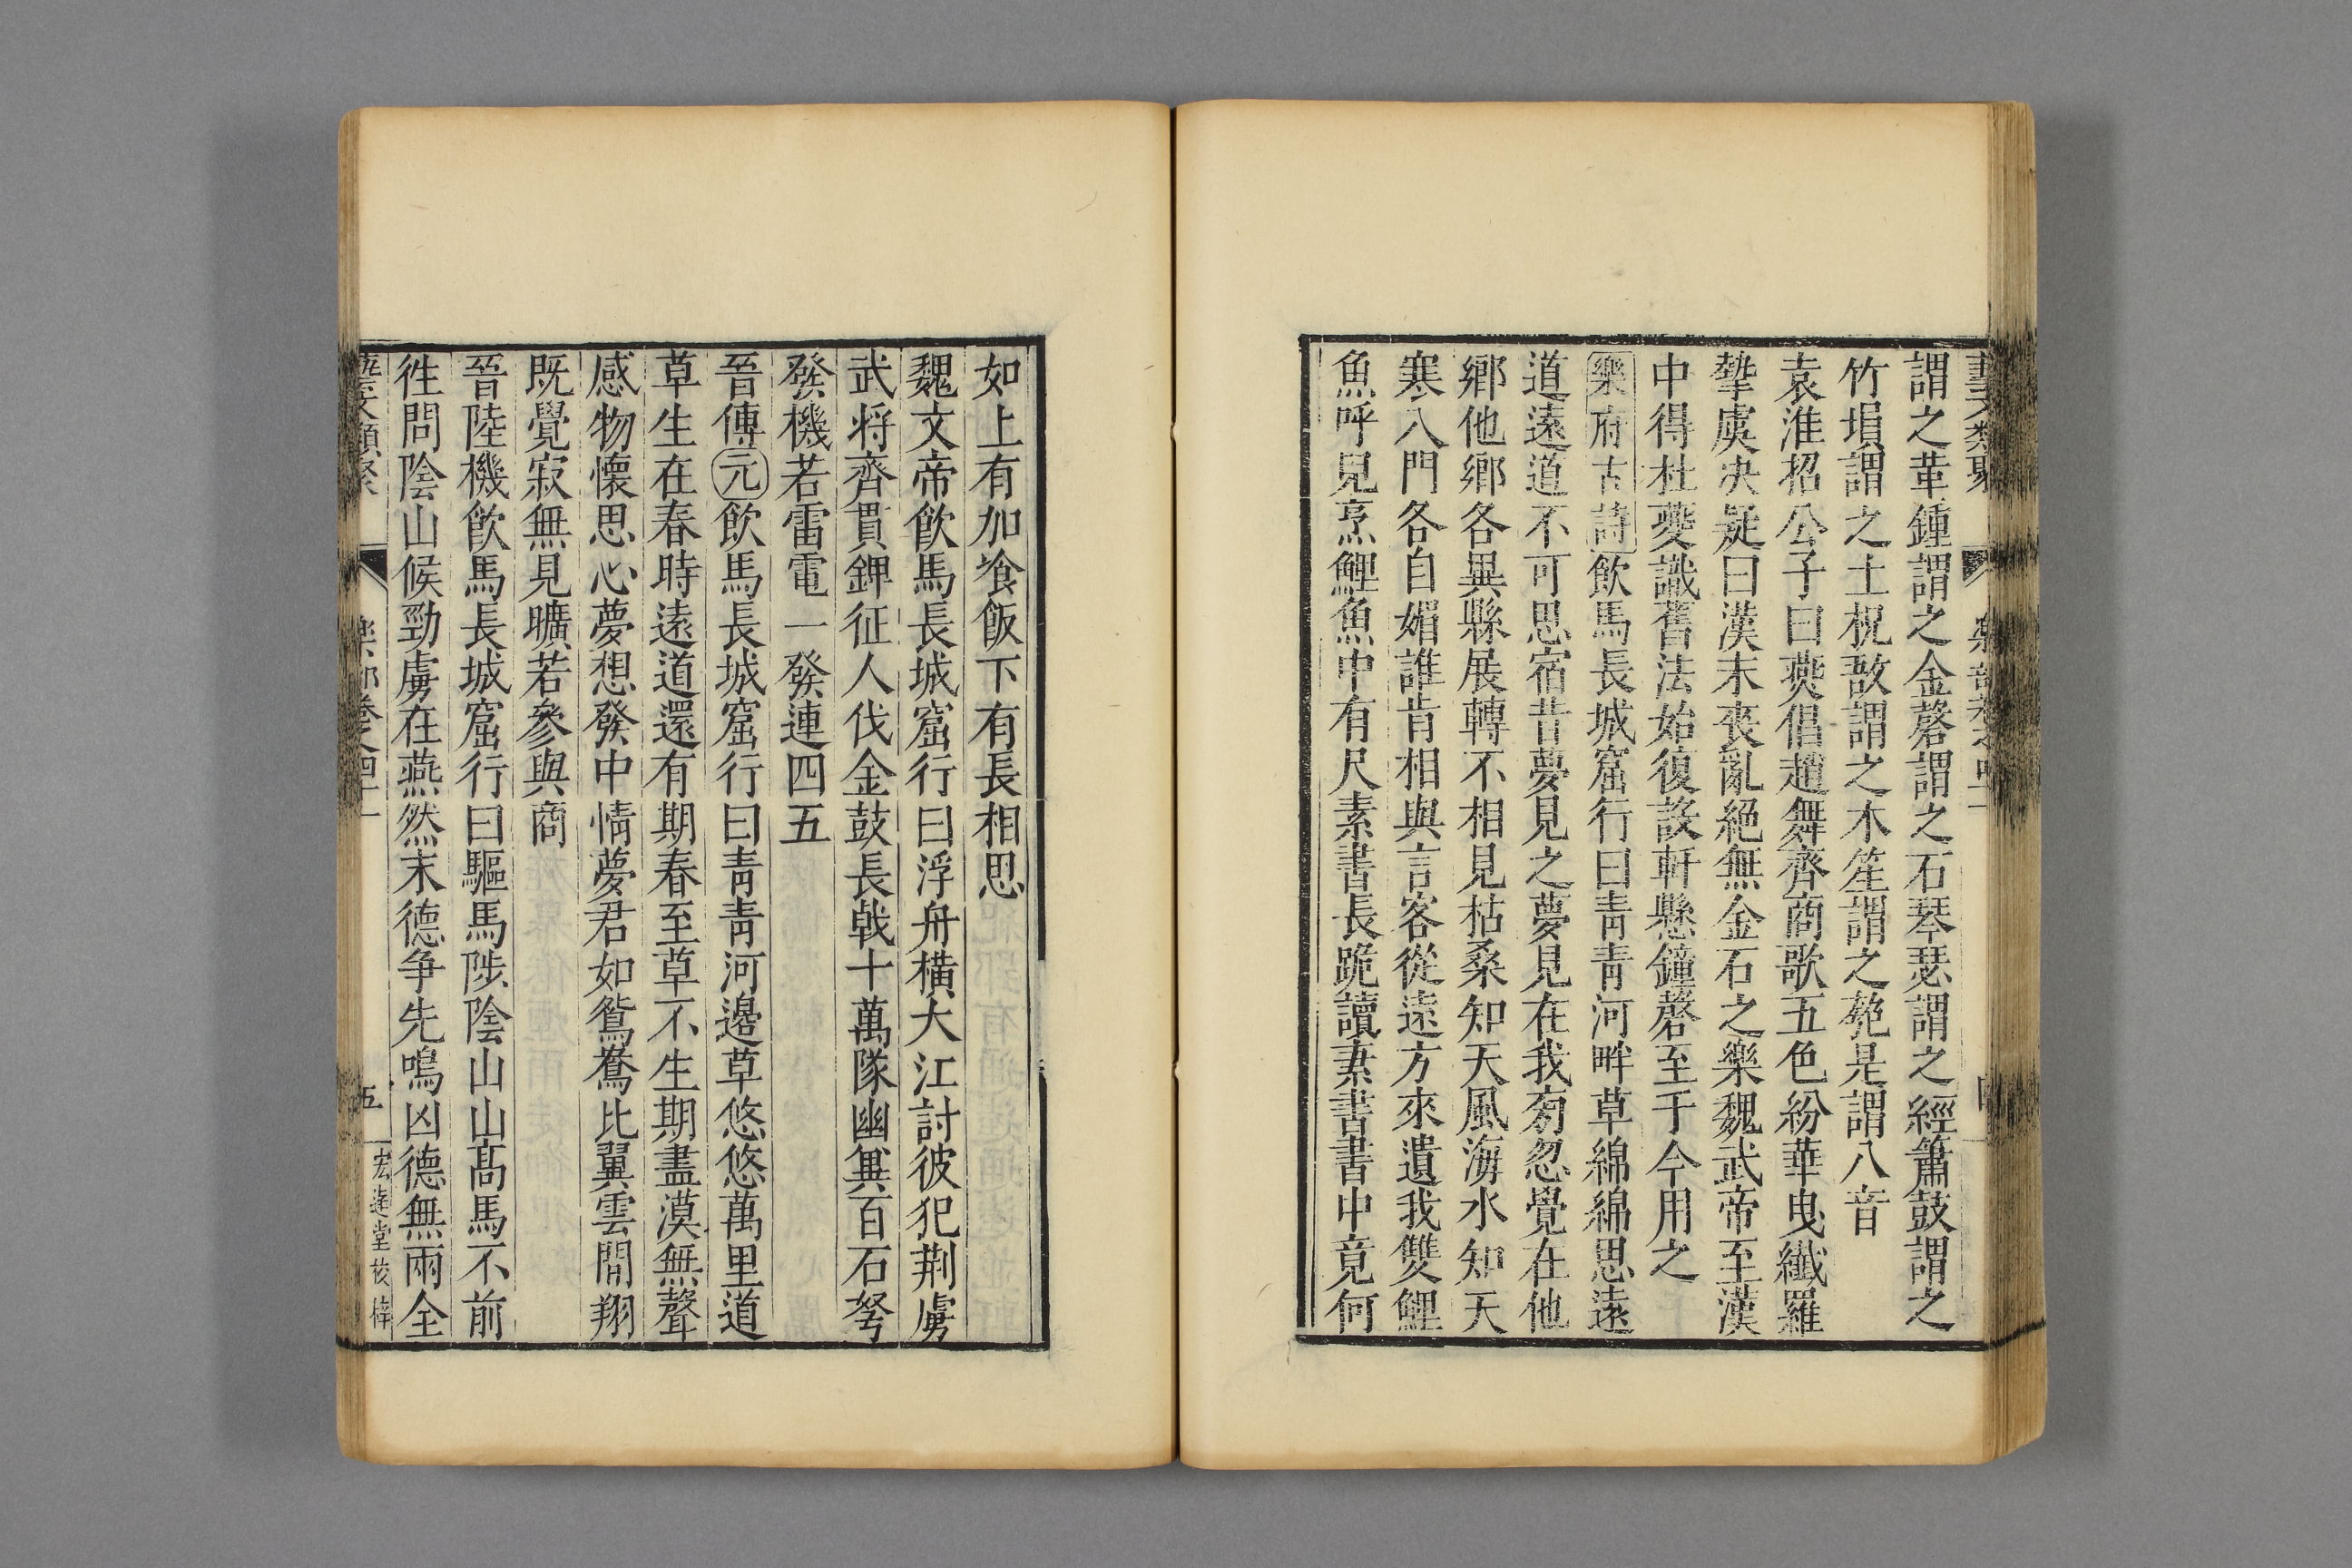 謂之革鍾謂之金磬謂之石琴瑟謂之經簫鼓謂之
竹塤謂之土柷敔謂之木笙謂之匏是謂八音
袁淮招公子曰燕倡趙舞齊商歌五色紛華曳纖羅
摯虞决疑曰漢末喪亂絕無金石之樂魏武帝至漢
中得杜夔識舊法始復設軒懸鐘磬至于今用之
樂府古詩飲馬長城窟行曰青青河畔草綿綿思遠
道遠道不可思宿昔夢見之夢見在我旁忽覺在他
鄉他鄉各異縣展轉不相見枯桑知天風海水知天
寒入門各自媚誰肯相與言客從遠方來遺我雙鯉
魚呼兒烹鯉魚中有尺素書長跪讀素書書中竟何
如上有加飡飯下有長相思
魏文帝飲馬長城窟行曰浮舟橫大江討彼犯荆虜
武将齊貫鉀征人伐金鼓長戟十萬隊幽冀百石弩
發機若雷電一發連四五
晉傅元飲馬長城窟行曰青青河邊草悠悠萬里道
草生在春時遠道還有期春至草不生期盡漠無聲
感物懷思心夢想發中情夢君如鴛鴦比翼雲間翔
既覺寂無見曠若參與商
晉陸機飲馬長城窟行曰驅馬陟陰山山髙馬不前
徃問陰山候勁虜在燕然末德争先鳴凶德無兩全
藝文類聚 樂部卷之四十一 五 宏達堂校梓